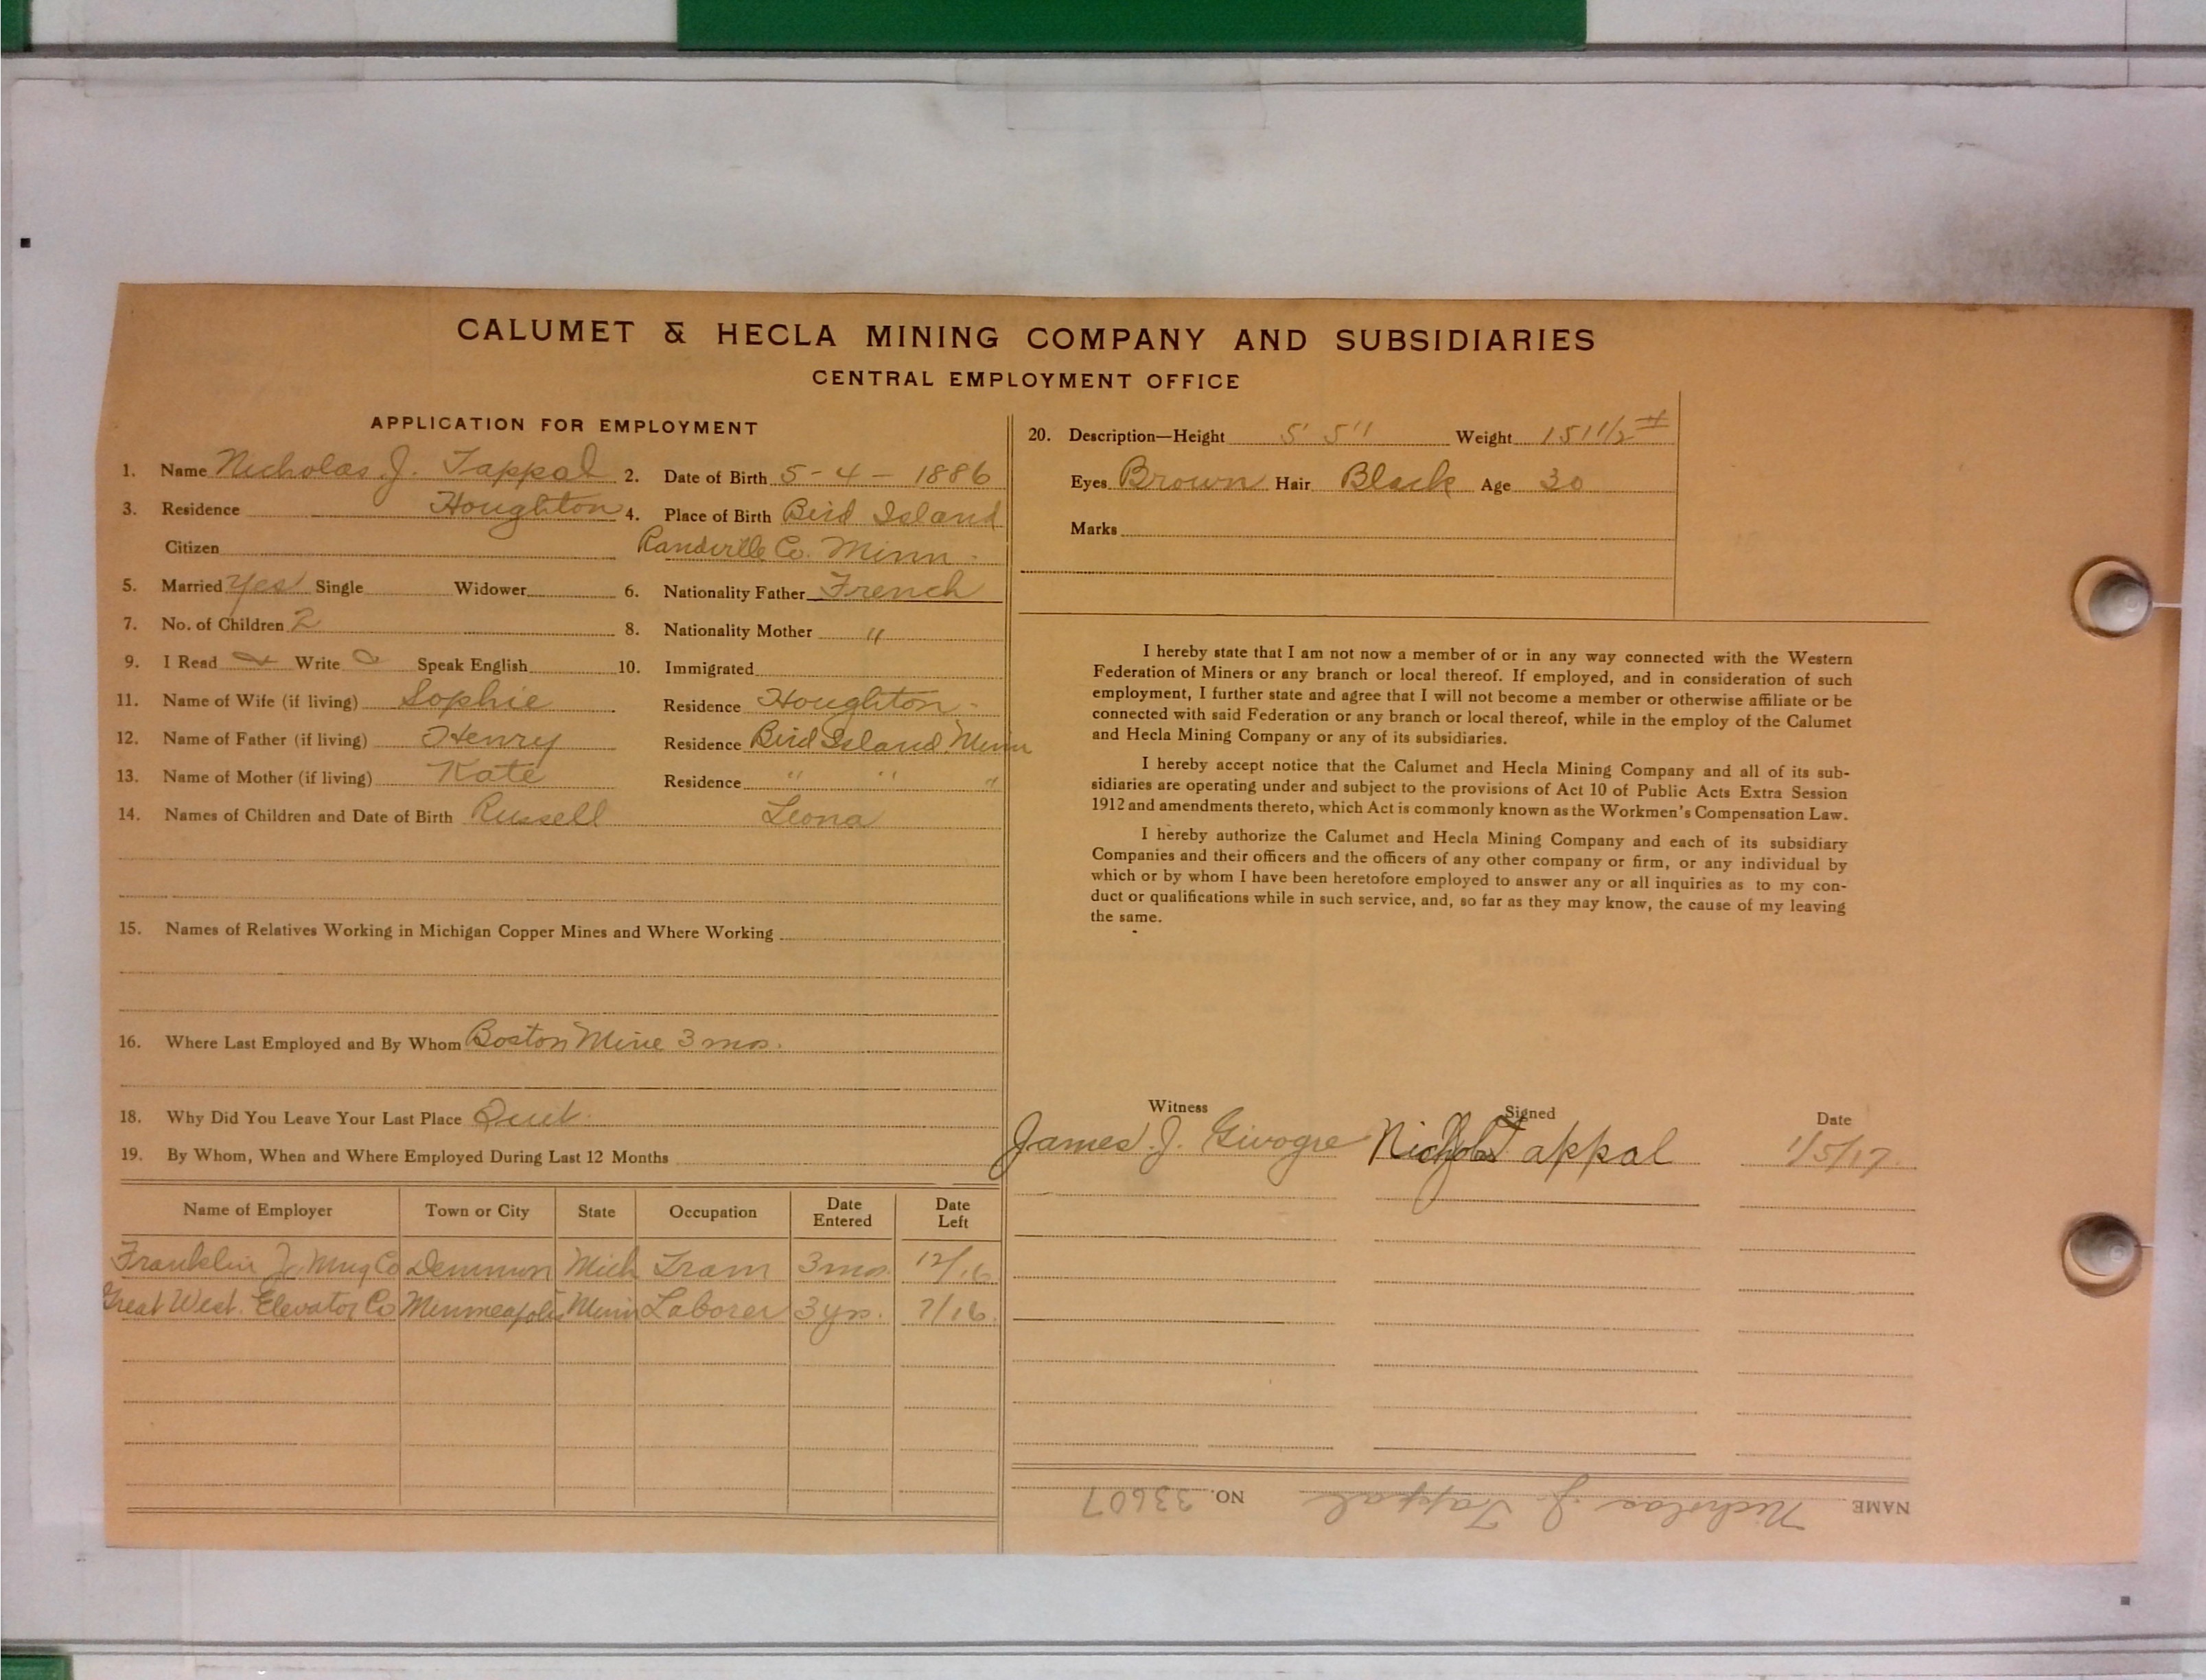 CALUMET & HECLA MINING COMPANY AND SUBSIDIARIES
CENTRAL EMPLOYMENT OFFICE
APPLICATION FOR EMPLOYMENT
1. Name Nicholas J. Tappal 2. Date of Birth 5-4-1886
3. Residence Houghton 4. Place of Birth Bird Island
Citizen Randville Co. Minn.
5. Married Yes Single Widower 6. Nationality Father French
7. No. of Children 2 8. Nationality Mother "
9. I Read Write Speak English 10. Immigrated
11. Name of Wife (if living) Sophie Residence Houghton
12. Name of Father (if living) Henry Residence Bird Island Minn
13. Name of Mother (if living) Kate Residence " " "
14. Names of Children and Date of Birth Russell Leona
15. Names of Relatives Working in Michigan Copper Mines and Where Working
16. Where Last Employed and By Whom Boston Mine 3 mos.
18. Why Did You Leave Your Last Place Quit.
19. By Whom, When and Where Employed During Last 12 Months
Name of Employer Town or City State Occupation Date Entered Date Left
Franklin Jr. Mng Co Demmon Mich Tram 3 mos. 12/16
Great West. Elevator Co Minneapolis Minn Laborer 3 yrs. 7/16.
20. Description—Height 5' 5" Weight 151 1/2 #
Eyes Brown Hair Black Age 30
Marks
I hereby state that I am not now a member of or in any way connected with the Western
Federation of Miners or any branch or local thereof. If employed, and in consideration of such
employment, I further state and agree that I will not become a member or otherwise affiliate or be
connected with said Federation or any branch or local thereof, while in the employ of the Calumet
and Hecla Mining Company or any of its subsidiaries.
I hereby accept notice that the Calumet and Hecla Mining Company and all of its sub-
sidiaries are operating under and subject to the provisions of Act 10 of Public Acts Extra Session
1912 and amendments thereto, which Act is commonly known as the Workmen's Compensation Law.
I hereby authorize the Calumet and Hecla Mining Company and each of its subsidiary
Companies and their officers and the officers of any other company or firm, or any individual by
which or by whom I have been heretofore employed to answer any or all inquiries as to my con-
duct or qualifications while in such service, and, so far as they may know, the cause of my leaving
the same.
Witness Signed Date
James J. Givogre Nicholas Tappal 1/5/17.
NAME Nicholas J. Tappal NO. 33607